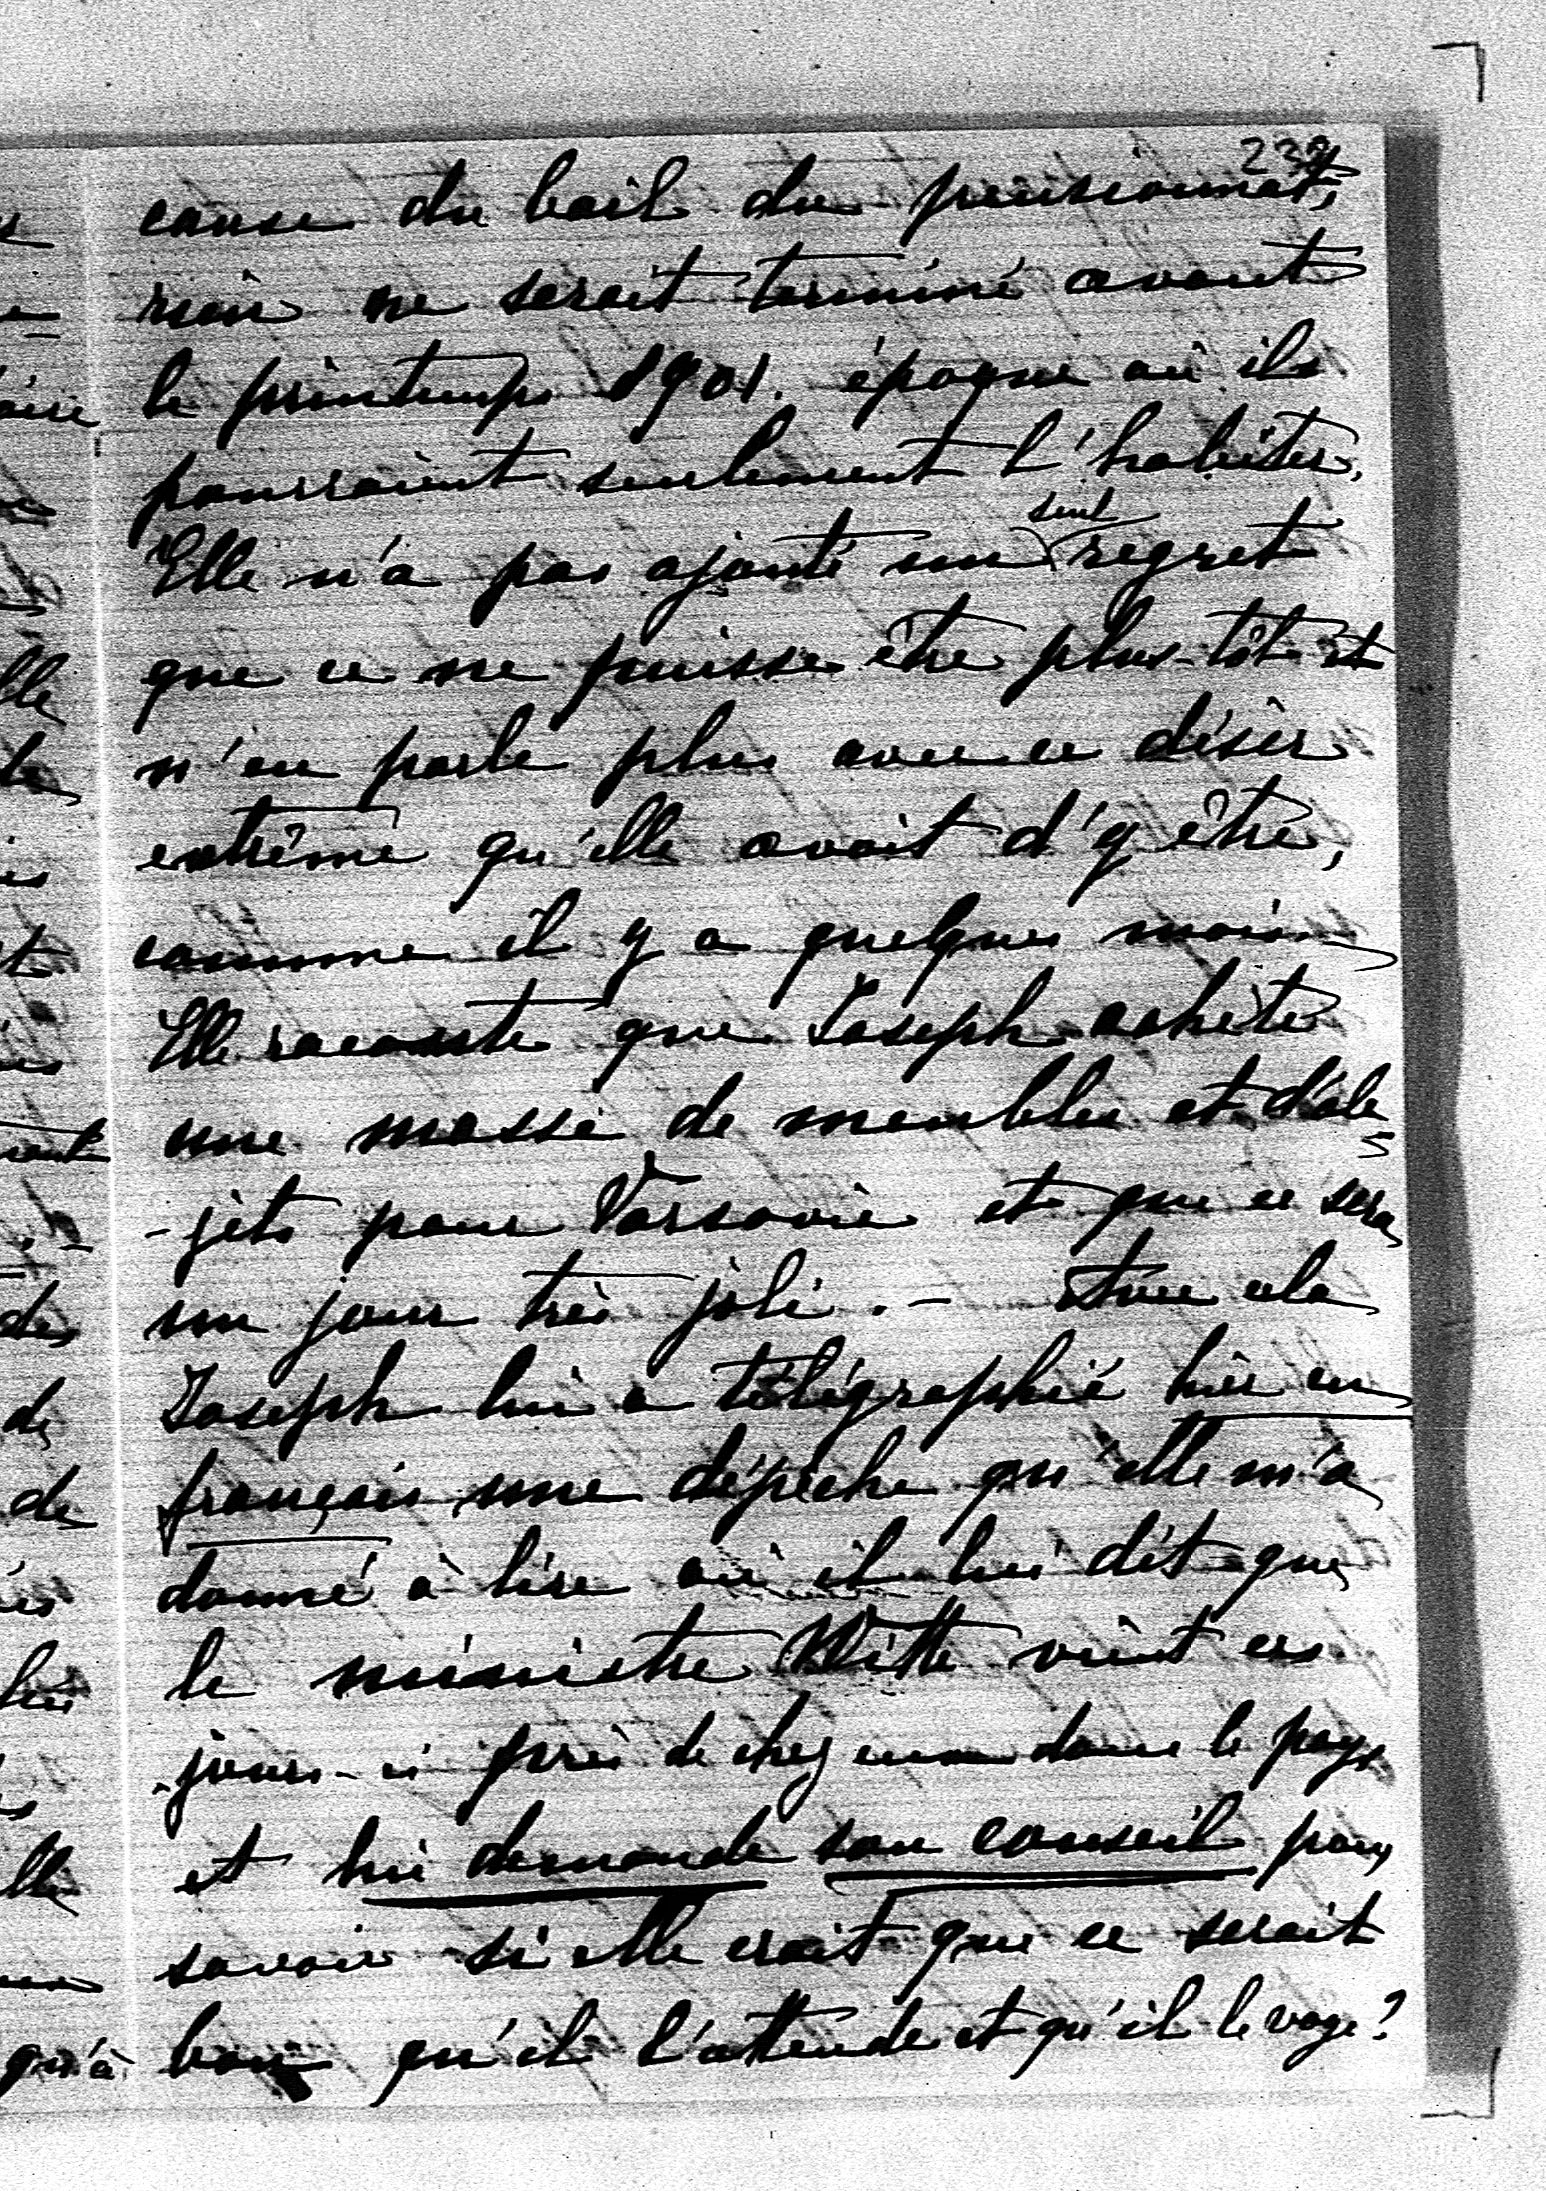 232
cause du bail du pensionnat,
rien ne serait terminé avant
le printemps 1901. époque où ils
pourraient seulement l'habiter,
seul
Elle n'a pas ajouté un regret
que ce ne puisse être plus-tôt et
n'en parle plus avec ce désir
extrême qu'elle avait d'y être,
comme il y a quelques mois
Elle raconte que Joseph achète
une masse de meubles et d'ob
-jets pour Varsovie et que ce sera
un jour très joli. - Avec cela
Joseph lui a télégraphié hier en
français une dépêche qu'elle m'a
donné à lire où il lui dit que
le ministre Witte vient ces
jours-ci près de chez eux dans le pays
et lui demande son conseil pour
savoir si elle croit que ce serait
bon qu'il l'attende et qu'il le voye?